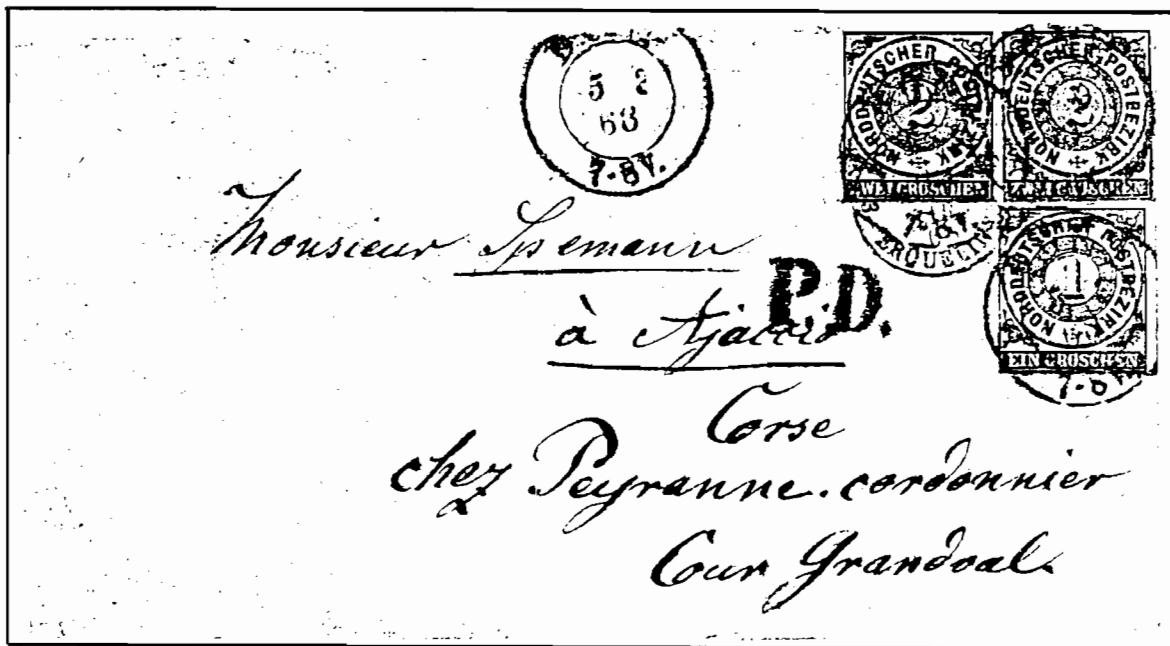 5 2
68
7-8V.
NORDDEUTSCHER POSTBEZIRK
2
NORDDEUTSCHER POSTBEZIRK
2
ZWEI GROSCHEN
ERQUELINS
NORDDEUTSCHER POSTBEZIRK
1
EIN GROSCHEN
Monsieur Spemann
P.D.
à Ajaccio
Corse
chez Peyranne. cordonnier
Cour Grandval